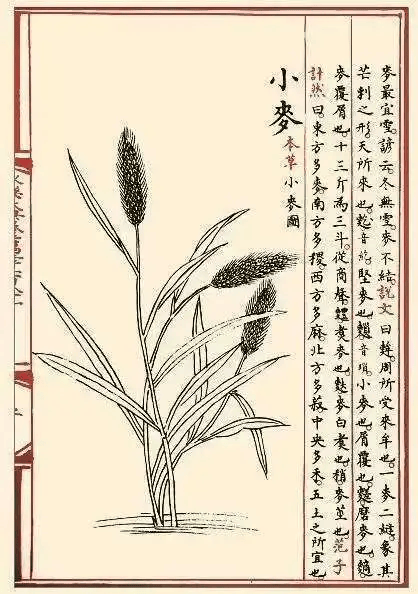 麥最宜雪諺云冬無雪麥不結說文曰周所受來牟也一麥二象其
芒刺之形天所來也麧音堅麥也音小麥也屑覆也磨麥也
麥覆屑也十三斤為三斗從聲煑麥也麥也稍麥莖也范子
計然曰東方多麥南方多稷西方多麻北方多菽中央多禾五土之所宜也
小麥
本草小麥圖